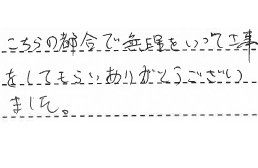 こちらの都合で無理をいって工事
をしてもらいありがとうござい
ました。